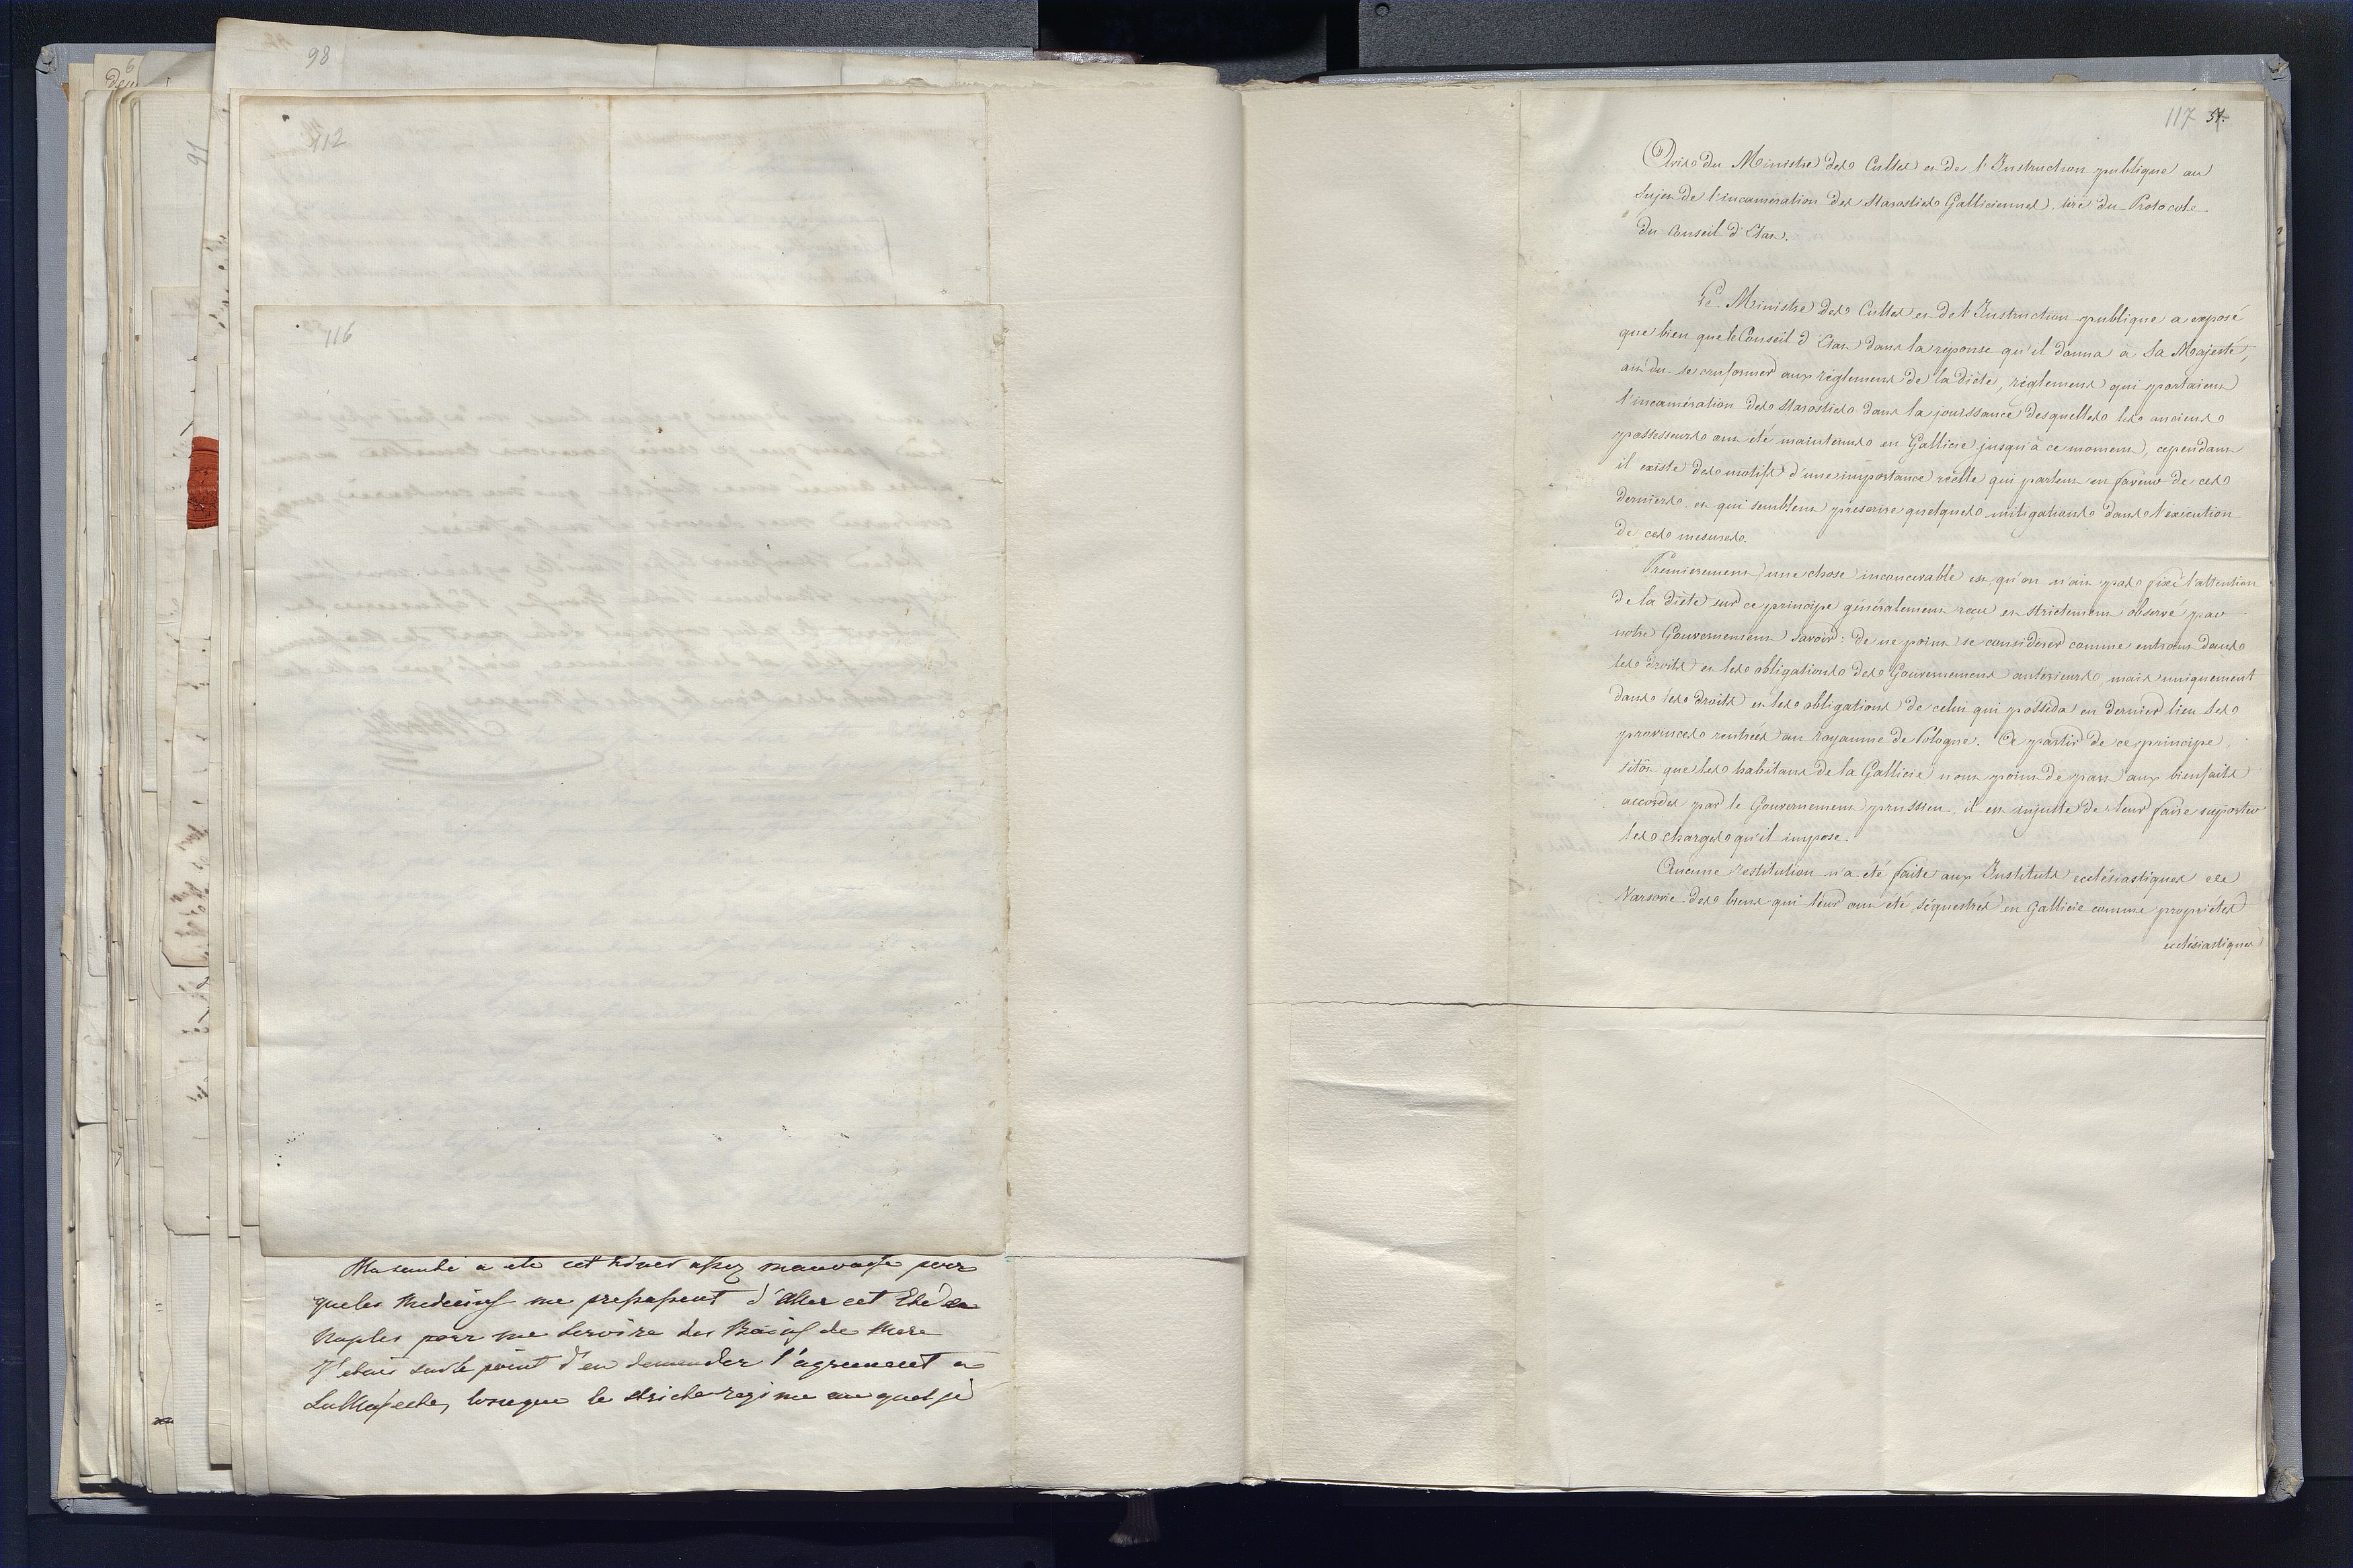 98
112
116
91
Ma santé a ete cet hiver assez mauvaise pour
que les Medecins me proposent d'aller cet Eté a
Naples pour me servire des Bains de Mere
J'etais sur le point d'en demander l'agrement a
Sa Majestee, lorsque le stricte regime au quel je
117 57.
Avis du Ministre des Cultes et de l'Instruction publique au
sujet de l'incamération des Starosties Galliciennes, tiré du Protocole
du Conseil d'Etat.
Le Ministre des Cultes et de l'Instruction publique a exposé
que bien que le Conseil d'Etat dans la réponse qu'il donna à Sa Majesté,
ait du se conformer aux règlemens de la diète, règlemens qui portaient
l'incamération des Starosties dans la jouissance desquelles les anciens
possesseurs ont été maintenus en Gallicie jusqu'à ce moment, cependant
il existe des motifs d'une importance réelle qui parlent en faveur de ces
derniers, et qui semblent prescrire quelques mitigations dans l'exécution
de ces mesures.
Premierement, une chose inconcevable est qu'on n'ait pas fixé l'attention
de la diète sur ce principe généralement reçu et strictement observé par
notre Gouvernement savoir: de ne point se considérer comme entrant dans
les droits et les obligations des Gouvernemens antérieurs, mais uniquement
dans les droits et les obligations de celui qui posséda en dernier lieu les
provinces rentrées au royaume de Pologne. A partir de ce principe,
sitôt que les habitans de la Gallicie n'ont point de part aux bienfaits
accordés par le Gouvernement prussien, il est injuste de leur faire suporter
les charges qu'il impose.
Aucune restitution n'a été faite aux Instituts ecclésiastiques de
Varsovie des biens qui leur ont été séquestrés en Gallicie comme propriétés
ecclésiastiques